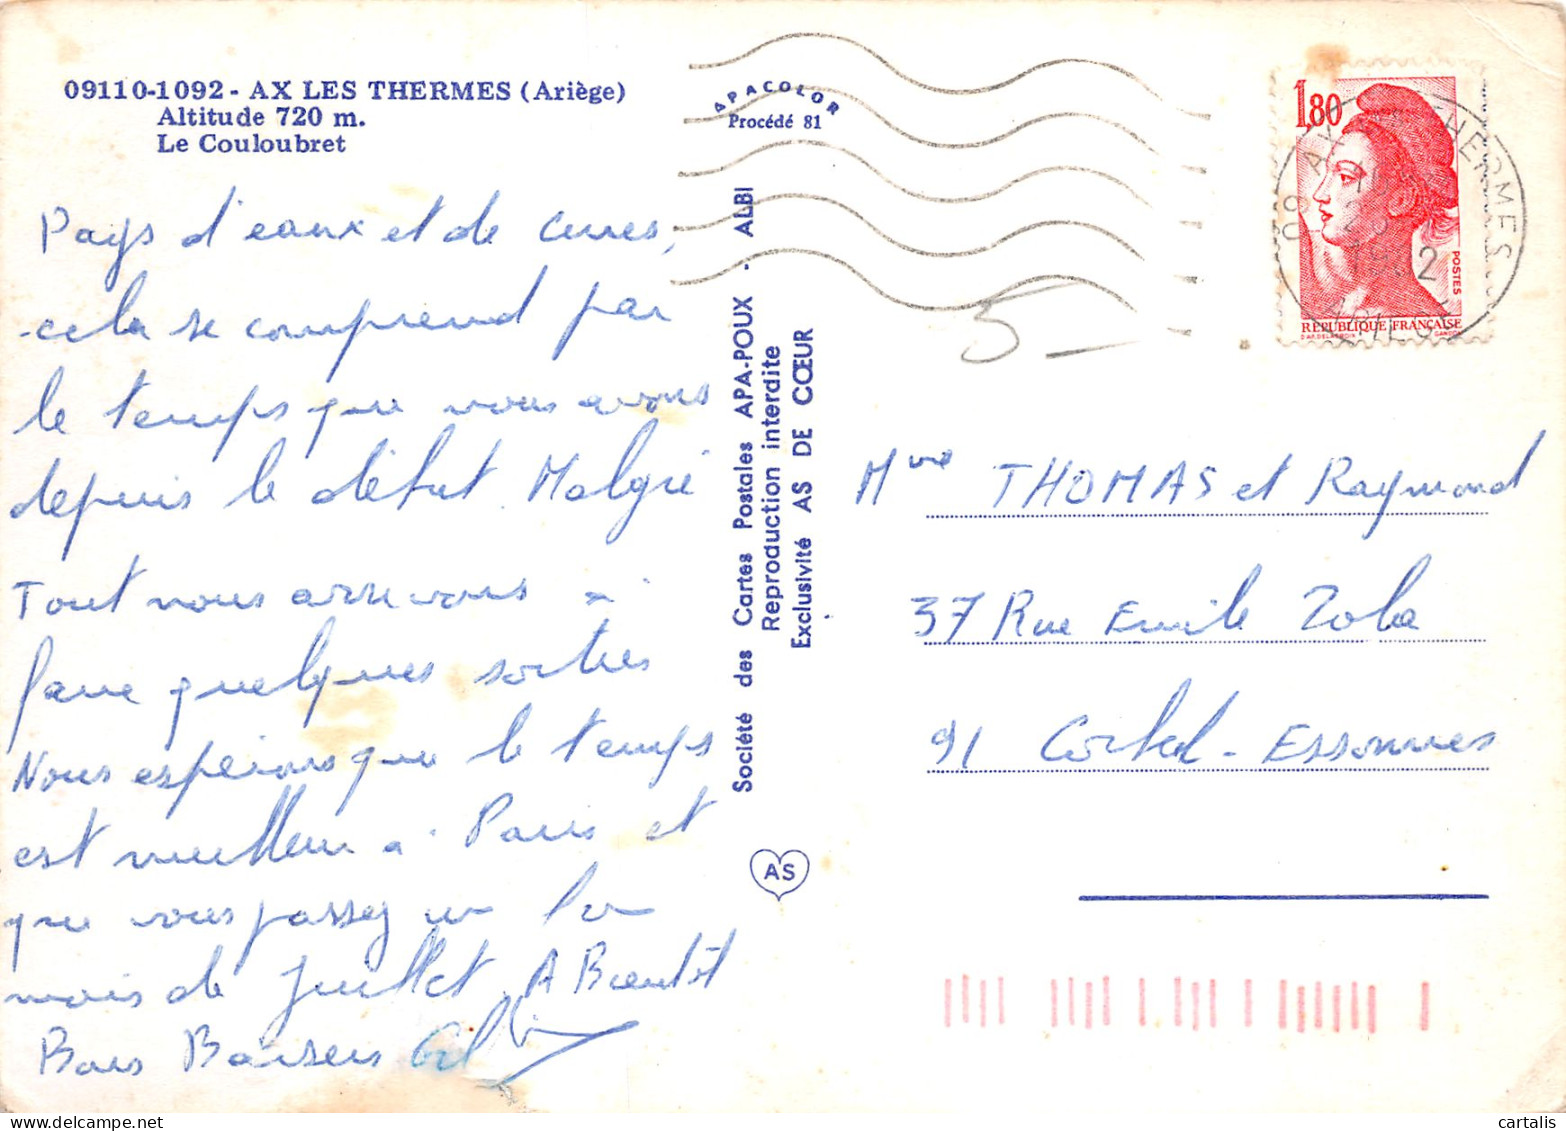 09110-1092 - AX LES THERMES (Ariège)
Altitude 720 m.
Le Couloubret
Pays d'eaux et de cures,
cela se comprend par
le temps que nous avons
depuis le début Malgré
Tout nous arrivons à
faire quelques sorties
Nous espérons que le temps
est meilleur à Paris et
que vous passez un bon
mois de Juillet A Bientôt
Bons Baisers
APACOLOR
Procédé 81
Société des Cartes Postales APA-POUX - ALBI
Reproduction interdite
Exclusivité AS DE CŒUR
AS
1,80
POSTES
RÉPUBLIQUE FRANÇAISE
09 AX LES THERMES
ARIEGE
5
Mme THOMAS et Raymond
37 Rue Emile Zola
91 Corbeil-Essonnes
cartalis